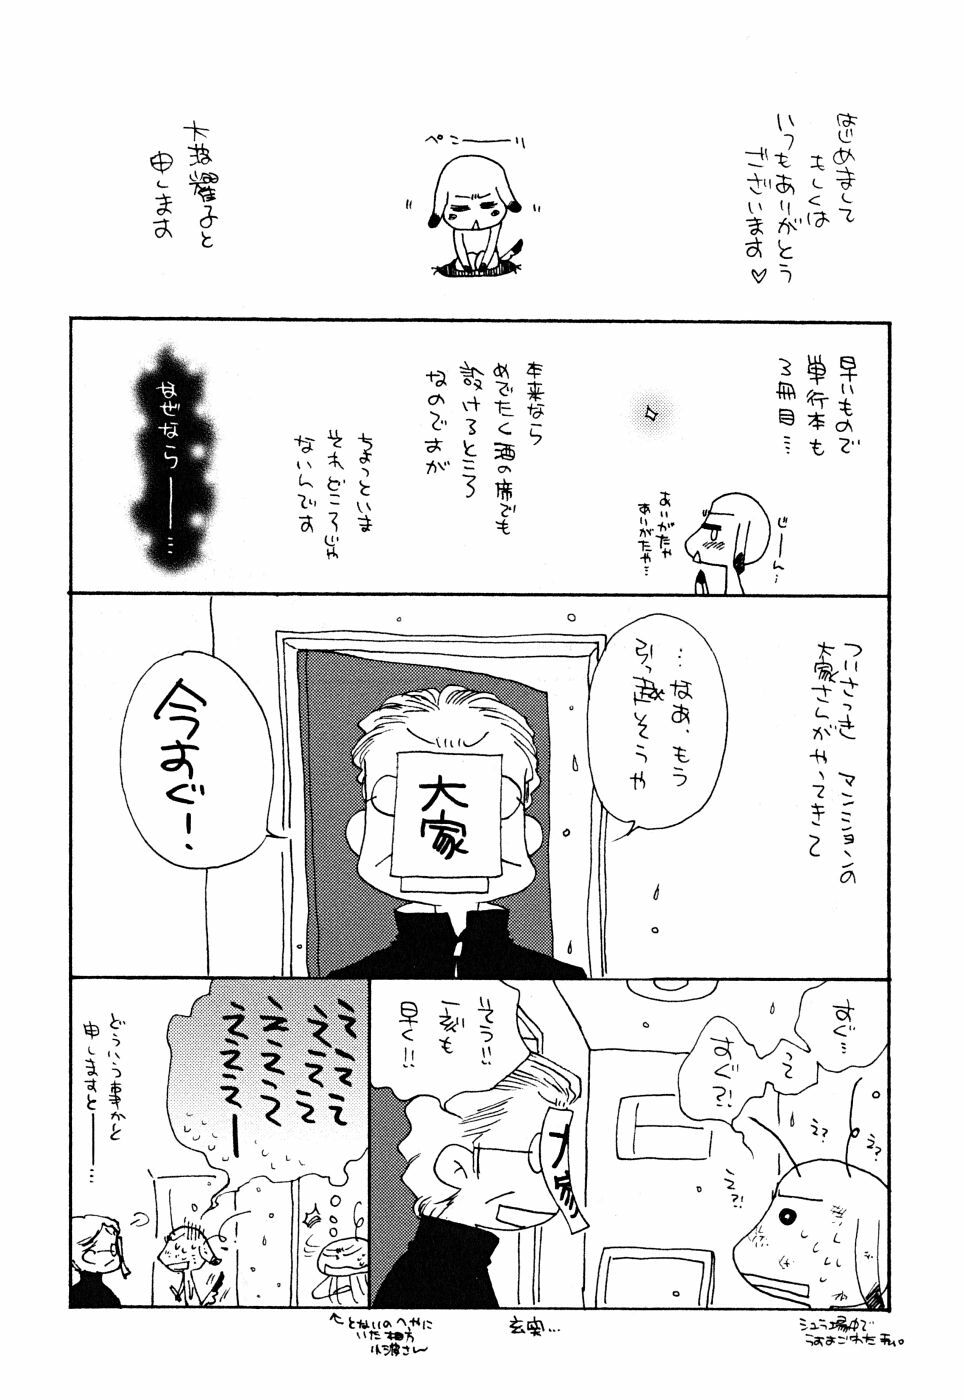 はじめまして
もしくは
いつもありがとう
ございます♡
ぺこーーーり
大波耀子と
申します
早いもので
単行本も
3冊目…
じーん…
ありがたや
ありがたや…
本来なら
めでたく酒の席でも
設けるところ
なのですが
ちょっといま
それどころじゃ
ないんです
なぜならーー…
ついさっき マンションの
大家さんがやってきて
…なあ、もう
引っ越そうや
大家
今すぐ!
すぐ…
って
すぐ?!
え?
え?
え?!
そう!!
一刻も
早く!!
大家
シュラ場中で
うすよごれた私。
玄関…
えええ
ええええ
ええええ
えええーー
どういう事かと
申しますとーー…
←となりのへやに
いた相方
小波さん